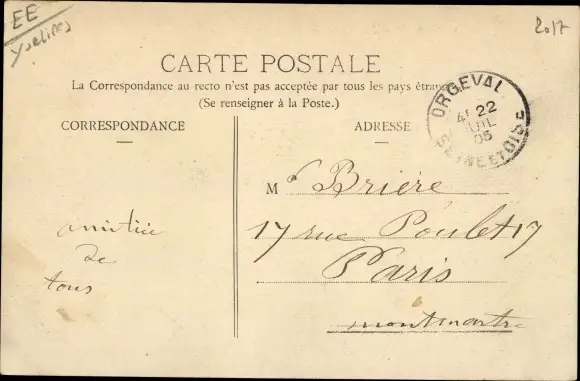 EE
Yvelines
2017
CARTE POSTALE
La Correspondance au recto n'est pas acceptée par tous les pays étran
(Se renseigner à la Poste.)
CORRESPONDANCE
ADRESSE
ORGEVAL
22
JUIL
05
SEINE ET OISE
M Brière
17 rue Poulet 17
Paris
montmartre
amitiée
de
tous